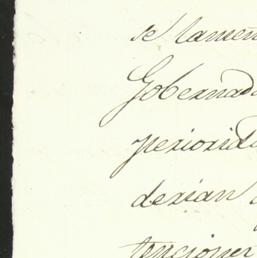 se lamen
Gobernad
periorida
derian
tencioner